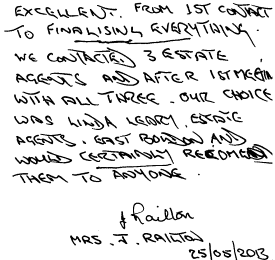 EXCELLENT. FROM 1ST CONTACT
TO FINALISING EVERYTHING.
WE CONTACTED 3 ESTATE
AGENTS AND AFTER 1ST MEETING
WITH ALL THREE. OUR CHOICE
WAS LINDA LEARY. ESTATE
AGENTS. EAST BOLDON AND
WOULD CERTAINLY RECOMEND
THEM TO ANYONE.
J Railton
MRS. J. RAILTON
25/05/2013